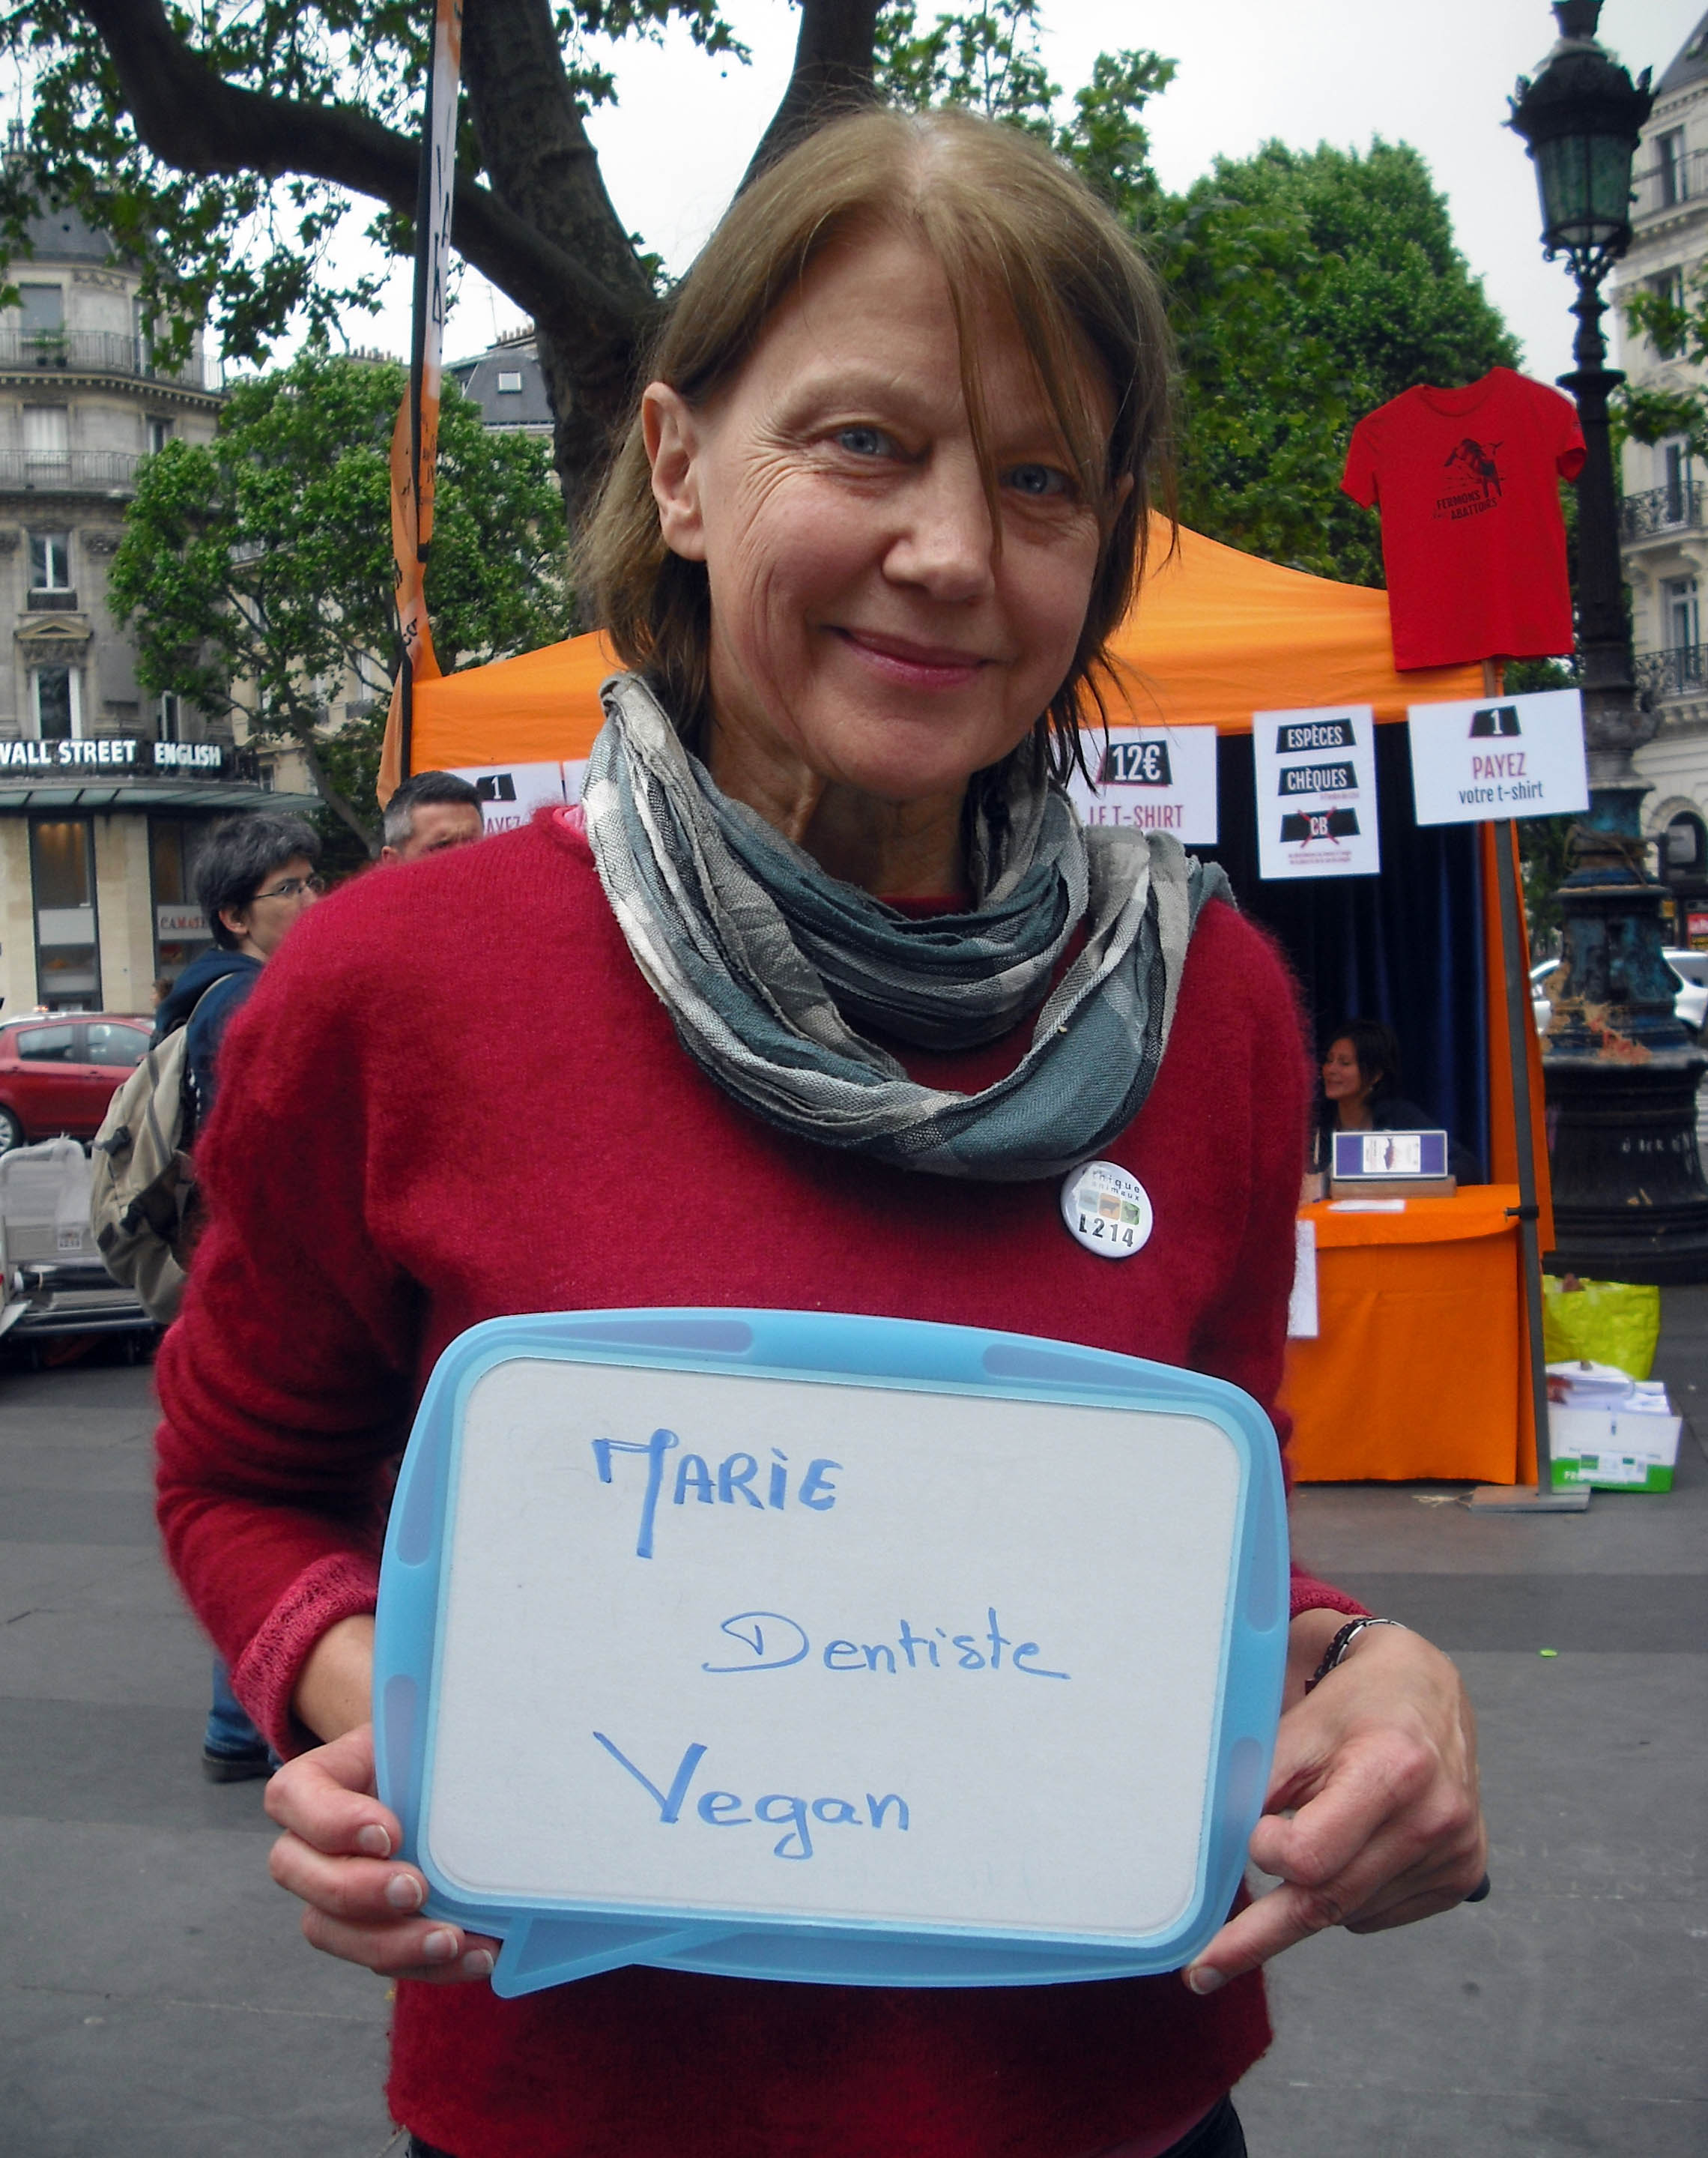 WALL STREET ENGLISH
FERMONS
LES ABATTOIRS
1
12€
LE T-SHIRT
ESPÈCES
CHÈQUES
CB
1
PAYEZ
votre t-shirt
éthique
animaux
L214
MARiE
Dentiste
Vegan